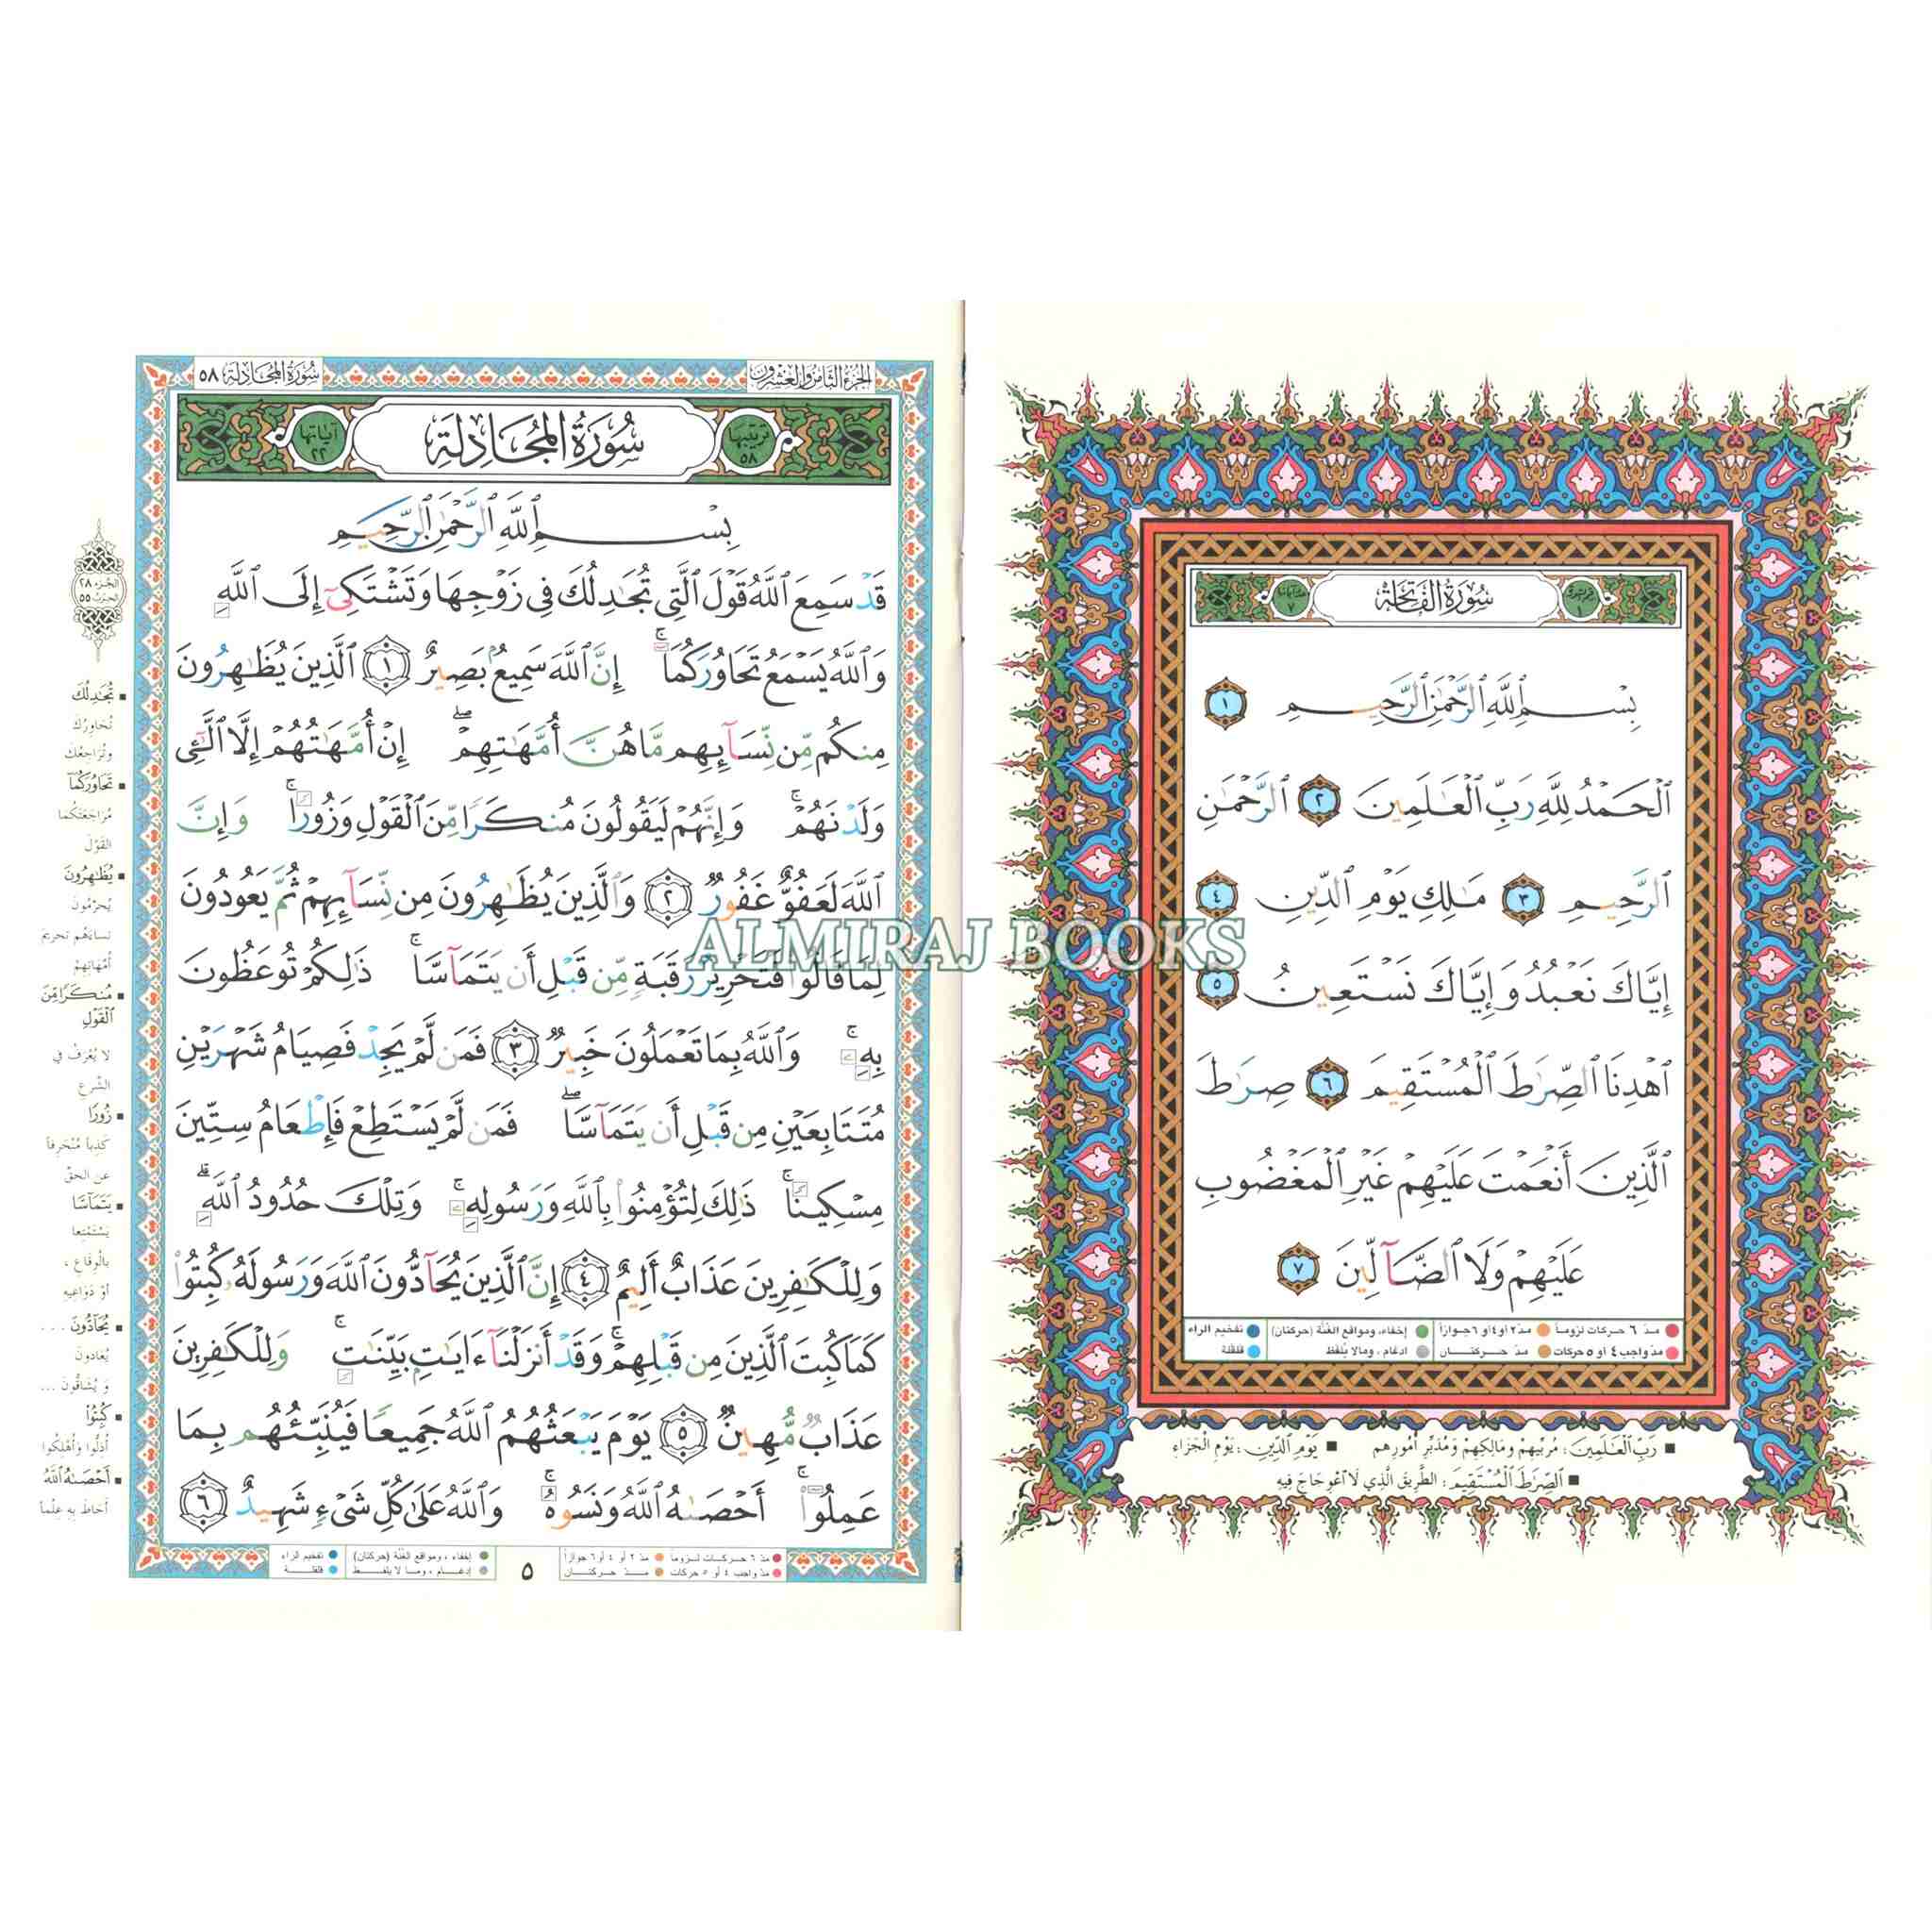 سُورَةُ الْفَاتِحَةِ
بِسْمِ ٱللَّهِ ٱلرَّحْمَٰنِ ٱلرَّحِيمِ ١
ٱلْحَمْدُ لِلَّهِ رَبِّ ٱلْعَٰلَمِينَ ٢ ٱلرَّحْمَٰنِ
ٱلرَّحِيمِ ٣ مَٰلِكِ يَوْمِ ٱلدِّينِ ٤
إِيَّاكَ نَعْبُدُ وَإِيَّاكَ نَسْتَعِينُ ٥
ٱهْدِنَا ٱلصِّرَٰطَ ٱلْمُسْتَقِيمَ ٦ صِرَٰطَ
ٱلَّذِينَ أَنْعَمْتَ عَلَيْهِمْ غَيْرِ ٱلْمَغْضُوبِ
عَلَيْهِمْ وَلَا ٱلضَّآلِّينَ ٧
مدّ ٦ حركات لزوماً مدّ ٢ أو ٤ أو ٦ جوازاً إخفاء، ومواقع الغُنَّة (حركتان) تفخيم الراء
مدّ واجب ٤ أو ٥ حركات مدّ حركتان ادغام، ومالا يُلفَظ قلقلة
رَبِّ ٱلْعَٰلَمِينَ: مُربّيهِمْ ومَالِكِهِمْ وَمُدَبِّرِ أمُورِهِم يَوْمِ ٱلدِّينِ: يَوْمِ الْجَزَاءِ
ٱلصِّرَٰطَ ٱلْمُسْتَقِيمَ: الطَّرِيقَ الَّذِي لَا اعْوِجَاجَ فِيهِ
الجزء الثامن والعشرون
سُورَةُ المُجَادلة ٥٨
ترتيبها ٥٨ سُورَةُ المُجَادِلَةِ آياتها ٢٢
بِسْمِ ٱللَّهِ ٱلرَّحْمَٰنِ ٱلرَّحِيمِ
قَدْ سَمِعَ ٱللَّهُ قَوْلَ ٱلَّتِي تُجَٰدِلُكَ فِي زَوْجِهَا وَتَشْتَكِىٓ إِلَى ٱللَّهِ
وَٱللَّهُ يَسْمَعُ تَحَاوُرَكُمَآ ۚ إِنَّ ٱللَّهَ سَمِيعٌۢ بَصِيرٌ ١ ٱلَّذِينَ يُظَٰهِرُونَ
مِنكُم مِّن نِّسَآئِهِم مَّا هُنَّ أُمَّهَٰتِهِمْ ۖ إِنْ أُمَّهَٰتُهُمْ إِلَّا ٱلَّٰٓـِٔى
وَلَدْنَهُمْ ۚ وَإِنَّهُمْ لَيَقُولُونَ مُنكَرًا مِّنَ ٱلْقَوْلِ وَزُورًا ۚ وَإِنَّ
ٱللَّهَ لَعَفُوٌّ غَفُورٌ ٢ وَٱلَّذِينَ يُظَٰهِرُونَ مِن نِّسَآئِهِمْ ثُمَّ يَعُودُونَ
لِمَا قَالُوا۟ فَتَحْرِيرُ رَقَبَةٍ مِّن قَبْلِ أَن يَتَمَآسَّا ۚ ذَٰلِكُمْ تُوعَظُونَ
بِهِۦ ۚ وَٱللَّهُ بِمَا تَعْمَلُونَ خَبِيرٌ ٣ فَمَن لَّمْ يَجِدْ فَصِيَامُ شَهْرَيْنِ
مُتَتَابِعَيْنِ مِن قَبْلِ أَن يَتَمَآسَّا ۖ فَمَن لَّمْ يَسْتَطِعْ فَإِطْعَامُ سِتِّينَ
مِسْكِينًا ۚ ذَٰلِكَ لِتُؤْمِنُوا۟ بِٱللَّهِ وَرَسُولِهِۦ ۚ وَتِلْكَ حُدُودُ ٱللَّهِ ۗ
وَلِلْكَٰفِرِينَ عَذَابٌ أَلِيمٌ ٤ إِنَّ ٱلَّذِينَ يُحَآدُّونَ ٱللَّهَ وَرَسُولَهُۥ كُبِتُوا۟
كَمَا كُبِتَ ٱلَّذِينَ مِن قَبْلِهِمْ ۚ وَقَدْ أَنزَلْنَآ ءَايَٰتٍۭ بَيِّنَٰتٍ ۚ وَلِلْكَٰفِرِينَ
عَذَابٌ مُّهِينٌ ٥ يَوْمَ يَبْعَثُهُمُ ٱللَّهُ جَمِيعًا فَيُنَبِّئُهُم بِمَا
عَمِلُوٓا۟ ۚ أَحْصَىٰهُ ٱللَّهُ وَنَسُوهُ ۚ وَٱللَّهُ عَلَىٰ كُلِّ شَىْءٍ شَهِيدٌ ٦
مدّ ٦ حركات لزوماً مدّ ٢ أو ٤ أو ٦ جوازاً ٥ إخفاء، ومواقع الغُنَّة (حركتان) تفخيم الراء
مدّ واجب ٤ أو ٥ حركات مدّ حركتان إدغام، وما لا يلفظ قلقلة
الجُزء ٢٨
الحزب ٥٥
تُجَٰدِلُكَ
تُحَاوِرُكَ
وتُرَاجِعُكَ
تَحَاوُرَكُمَآ
مُرَاجَعَتَكُما
القَوْلَ
يُظَٰهِرُونَ
يُحَرِّمُونَ
نساءَهُم تحريمَ
أمَّهَاتِهِمْ
مُنكَرًا مِّنَ
ٱلْقَوْلِ
لا يُعْرَفُ في
الشَّرعِ
زُورًا
كَذِباً مُنْحَرِفاً
عن الحقِّ
يَتَمَآسَّا
يَسْتَمْتِعا
بالْوِقَاعِ،
أوْ دَوَاعِيهِ
يُحَآدُّونَ ...
يُعَادونَ
وَ يُشَاقُّونَ ...
كُبِتُوا۟
أذِلُّوا وَأهْلِكُوا
أَحْصَىٰهُ ٱللَّهُ
أحَاطَ بِهِ عِلْماً
ALMIRAJ BOOKS